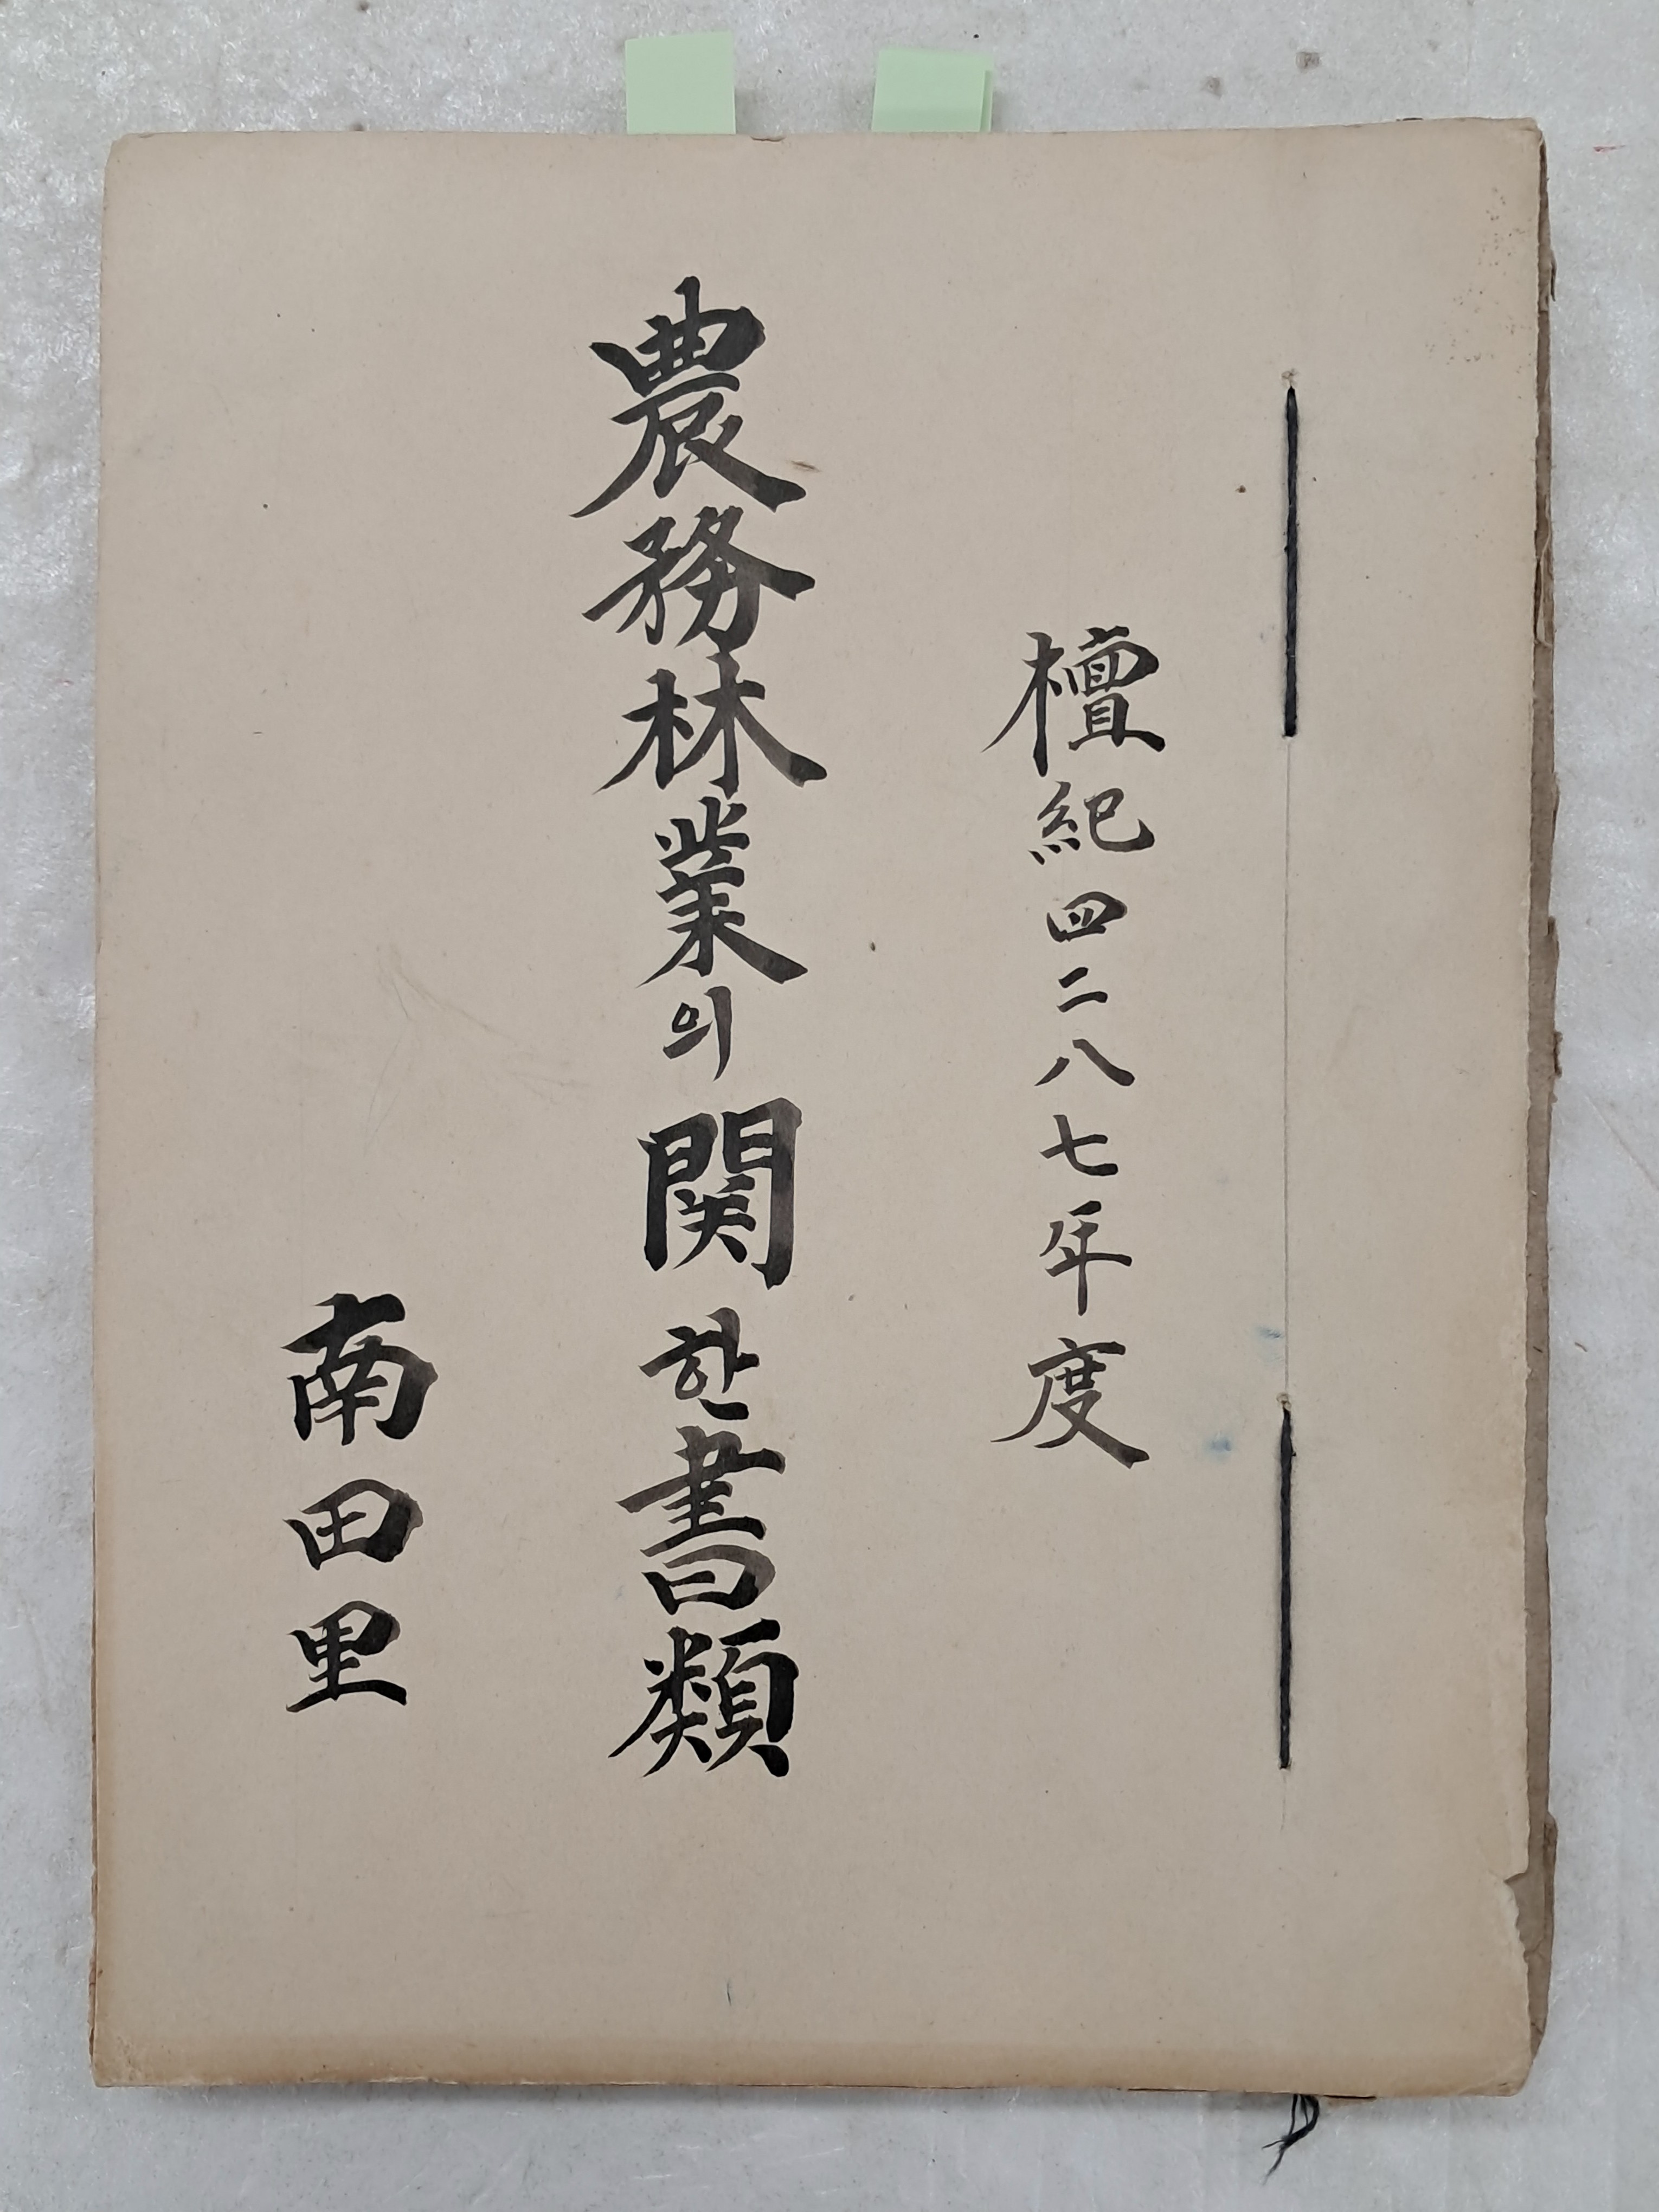 檀紀四二八七年度
農務林業의 関한 書類
南田里